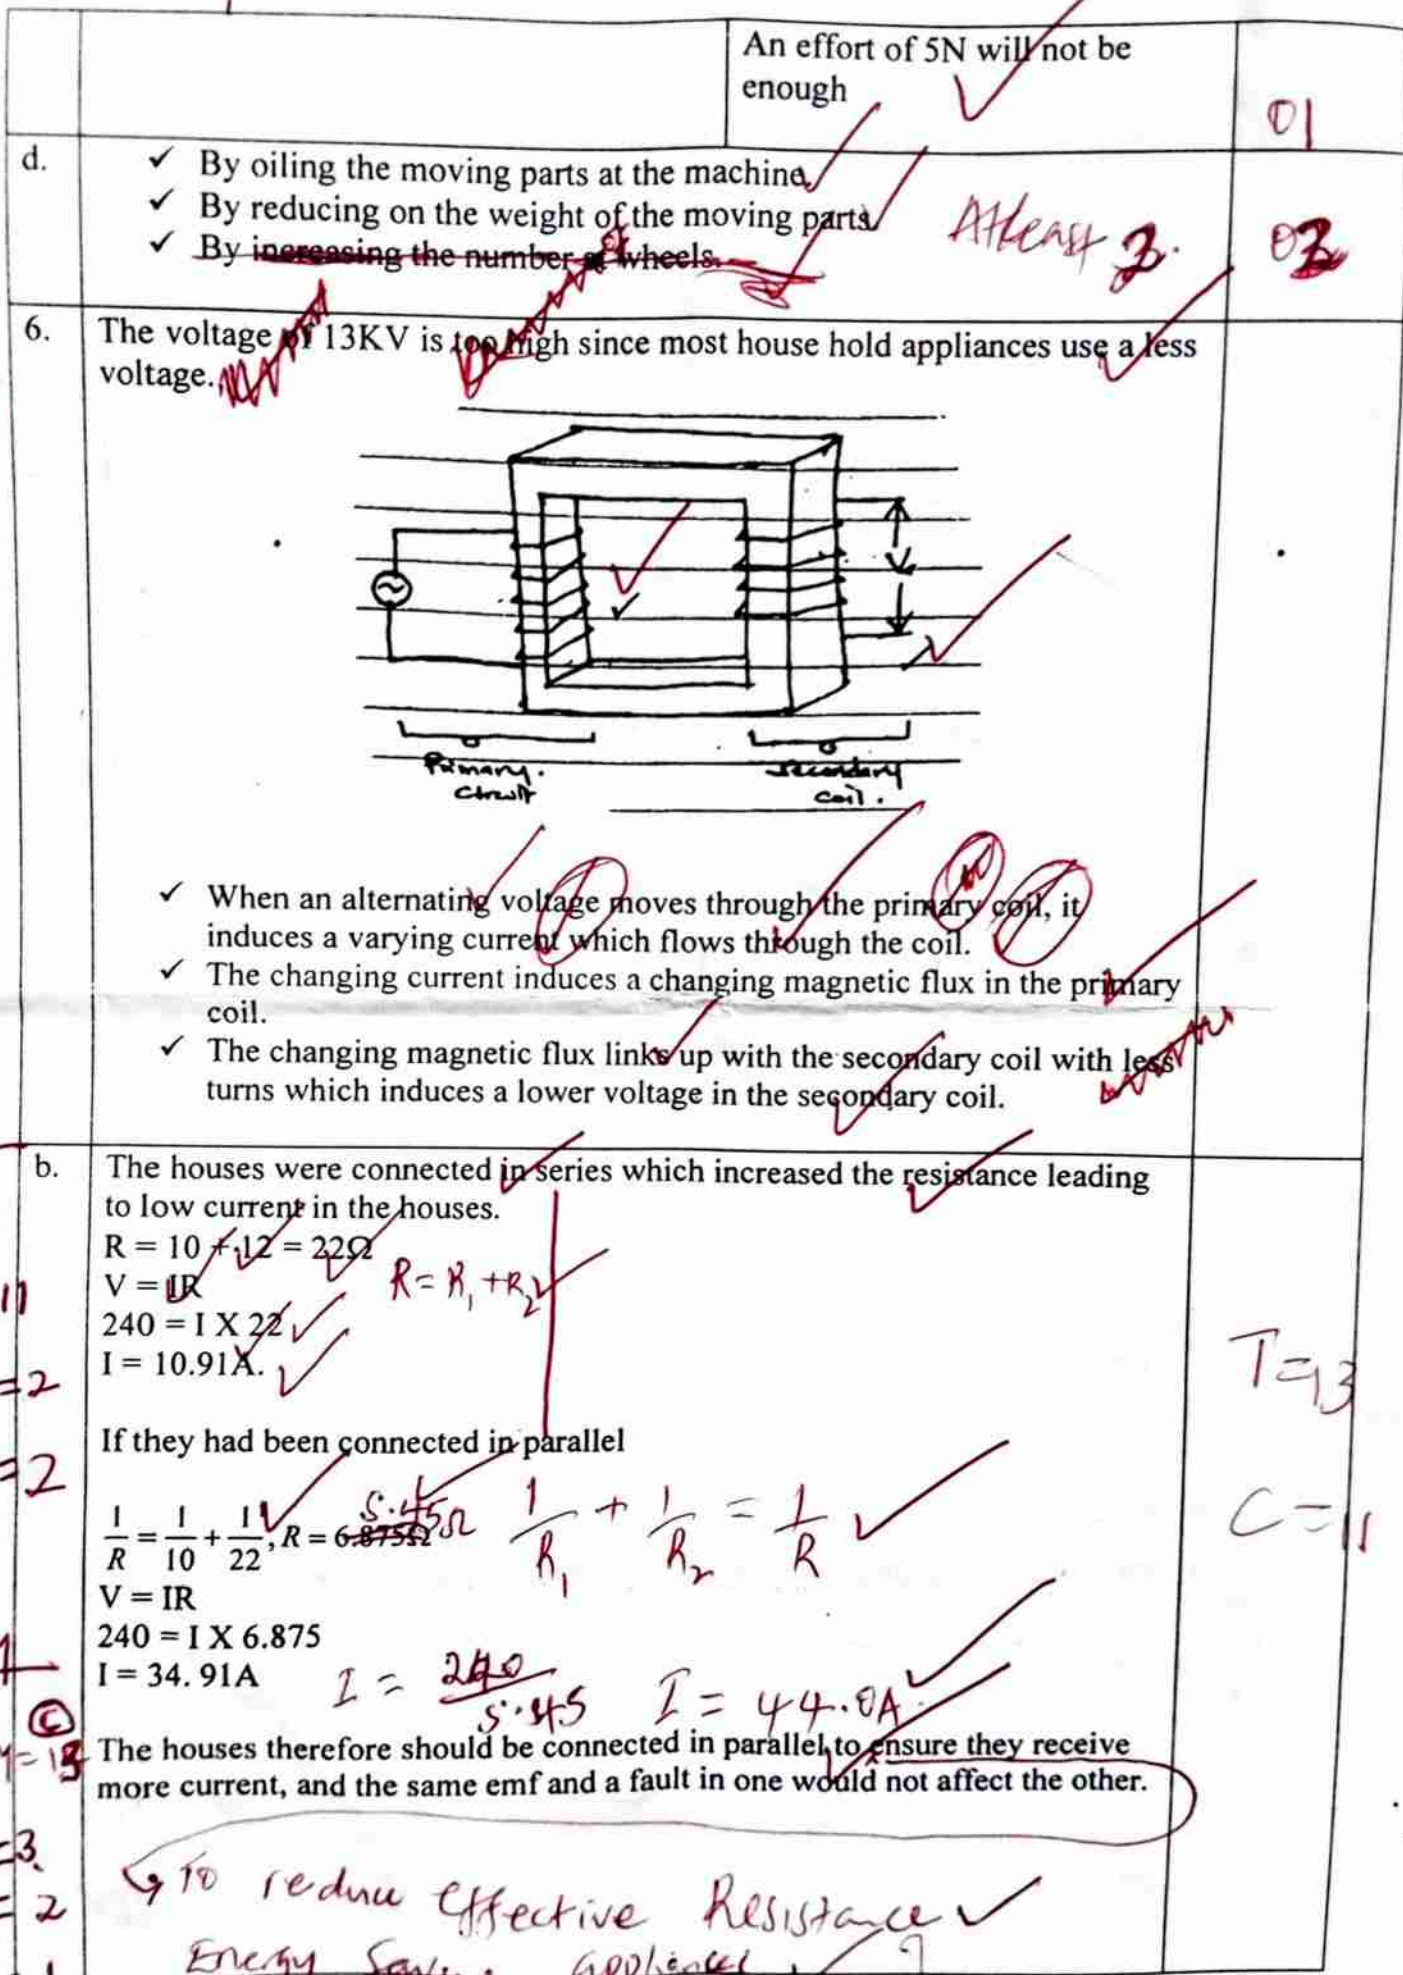 An effort of 5N will not be
enough
01
d.
✓ By oiling the moving parts at the machine.
✓ By reducing on the weight of the moving parts
✓ By increasing the number of wheels.
Atleast 2.
02
6.
The voltage of 13KV is too high since most house hold appliances use a less
voltage.
Primary.
Circuit
Secondary
coil.
✓ When an alternating voltage moves through the primary coil, it
induces a varying current which flows through the coil.
✓ The changing current induces a changing magnetic flux in the primary
coil.
✓ The changing magnetic flux links up with the secondary coil with less
turns which induces a lower voltage in the secondary coil.
b.
The houses were connected in series which increased the resistance leading
to low current in the houses.
R = 10 + 12 = 22Ω
V = IR
R = R₁ + R₂
11
240 = I X 22
I = 10.91A.
T=13
=2
If they had been connected in parallel
=2
1/R = 1/10 + 1/22, R = 6.875Ω
5.45Ω
1/R₁ + 1/R₂ = 1/R
C=11
V = IR
240 = I X 6.875
I = 34.91A
I = 240/5.45
I = 44.0A
C
=13
The houses therefore should be connected in parallel to ensure they receive
more current, and the same emf and a fault in one would not affect the other.
=3.
To reduce effective Resistance
=2
Energy appliances